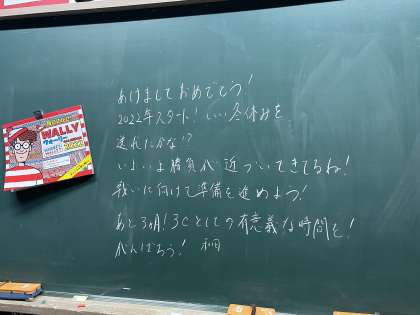 あけましておめでとう!
2022年スタート! いい冬休みを
送れたかな!?
いよいよ勝負が近づいてきてるね!
戦いに向けて準備を進めよう!
あと3ヵ月! 3Cとしての有意義な時間を!
がんばろう!
WALLY
ウォーリー